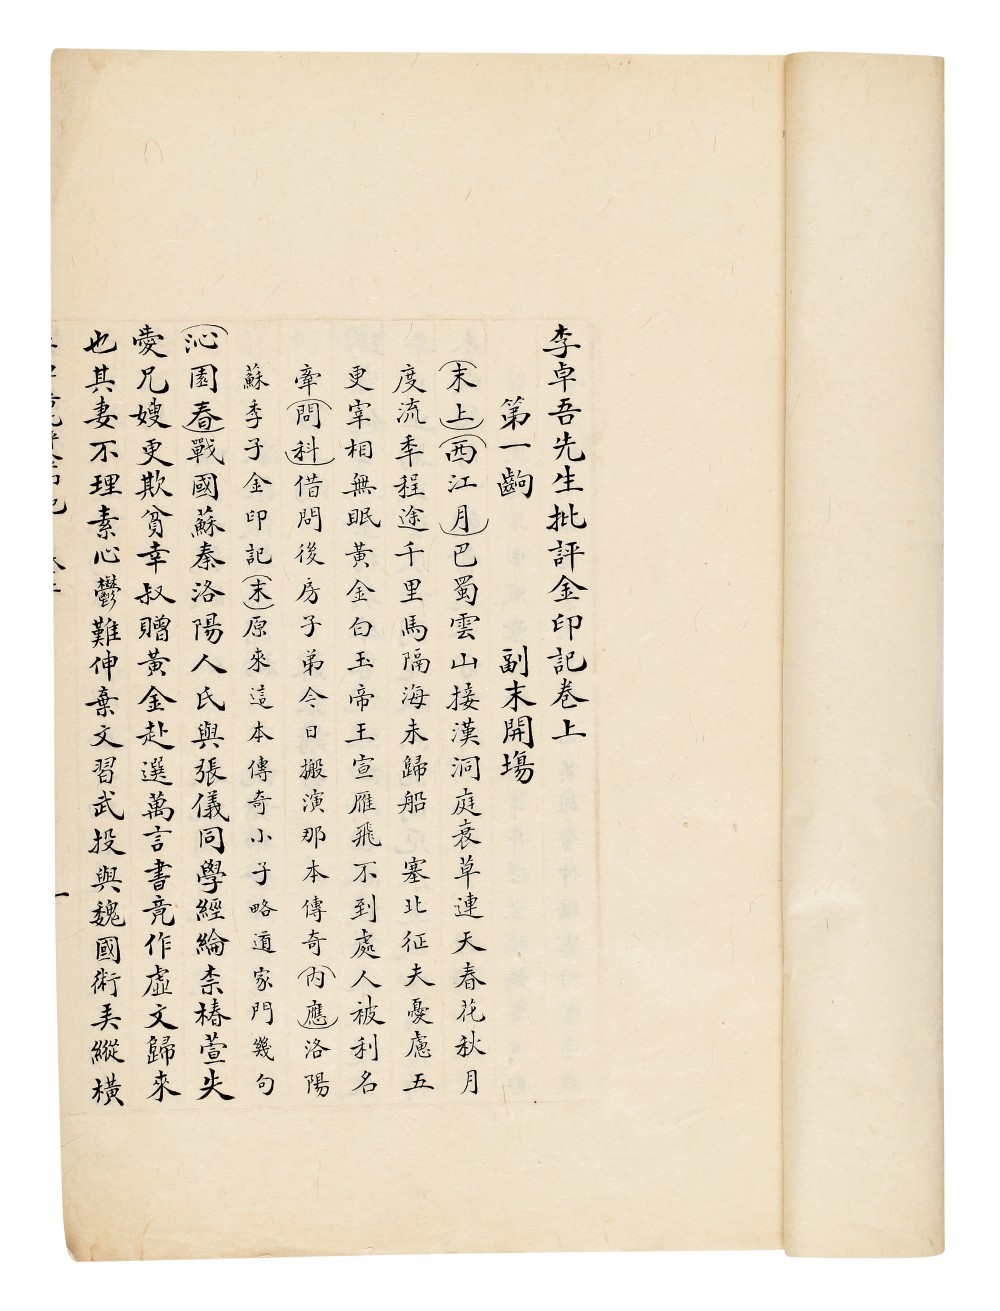 李卓吾先生批評金印記卷上
第一齣　　　　副末開場
末上西江月巴蜀雲山接漢洞庭衰草連天春花秋月
度流季程途千里馬隔海未歸船塞北征夫憂慮五
更宰相無眠黃金白玉帝王宣雁飛不到處人被利名
牽問科借問後房子弟今日搬演那本傳奇內應洛陽
蘇季子金印記末原來這本傳奇小子略道家門幾句
沁園春戰國蘇秦洛陽人氏與張儀同學經綸柰椿萱失
愛兄嫂更欺貧幸叔贈黃金赴選萬言書竟作虛文歸來
也其妻不理素心鬱難伸棄文習武投與魏國術美縱橫
一